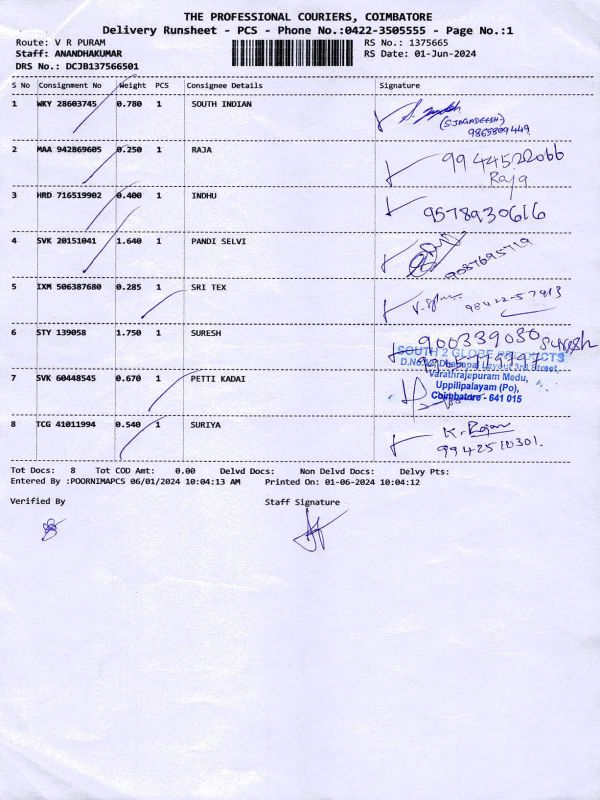 THE PROFESSIONAL COURIERS, COIMBATORE
Delivery Runsheet - PCS - Phone No.:0422-3505555 - Page No.:1
Route: V R PURAM RS No.: 1375665
Staff: ANANDHAKUMAR RS Date: 01-Jun-2024
DRS No.: DCJB137566501
S No Consignment No Weight PCS Consignee Details Signature
1 WKY 28603745 0.780 1 SOUTH INDIAN
(S.JAGADEESH)
9865809449
2 MAA 942869605 0.250 1 RAJA 9944522066
Raja
3 HRD 716519902 0.400 1 INDHU 9578930616
4 SVK 20151041 1.640 1 PANDI SELVI 9087695719
5 IXM 506387680 0.285 1 SRI TEX 98422-57913
6 STY 139058 1.750 1 SURESH 900339080 Suresh
SOUTH 2 GLOBE PRODUCTS
Layout 3rd Street,
7 SVK 60448545 0.670 1 PETTI KADAI Varathrajapuram Medu,
Uppilipalayam (Po),
Coimbatore - 641 015
8 TCG 41011994 0.540 1 SURIYA K. Rajan
9942510301.
Tot Docs: 8 Tot COD Amt: 0.00 Delvd Docs: Non Delvd Docs: Delvy Pts:
Entered By :POORNIMAPCS 06/01/2024 10:04:13 AM Printed On: 01-06-2024 10:04:12
Verified By Staff Signature